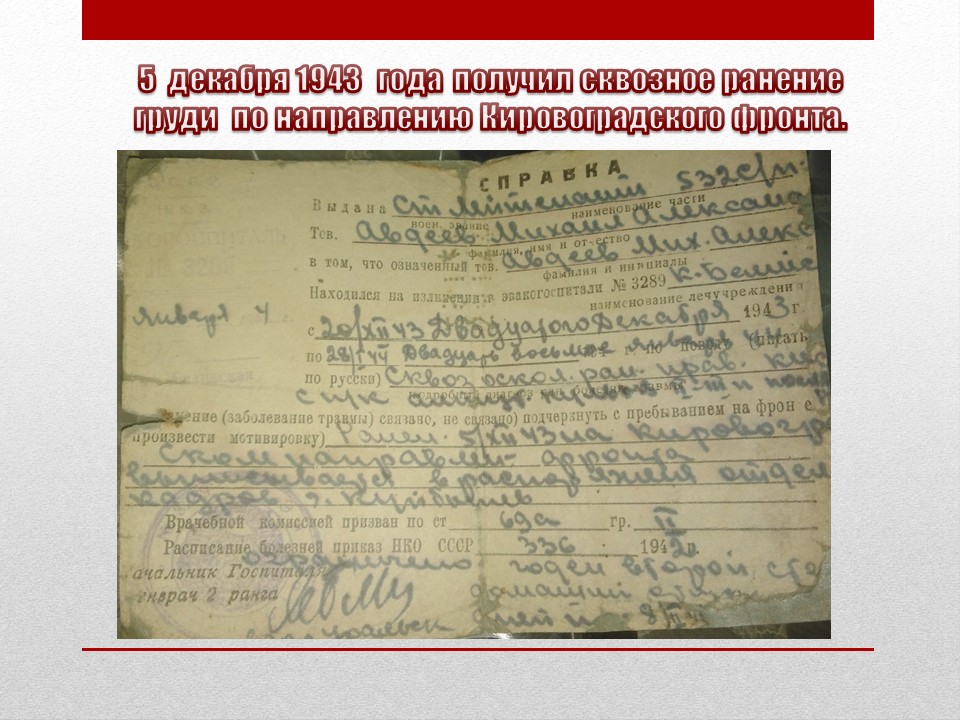 5 декабря 1943 года получил сквозное ранение
груди по направлению Кировоградского фронта.
СПРАВКА
Выдана 532 с/п.
наименование части
воен. звание
Тов. Авдеев Михаил Александ
фамилия, имя и отчество
в том, что означенный тов. Авдеев Мих. Алекс
фамилия и инициалы
Находился на излечении в эвакогоспитали № 3289
наименование лечучреждения
января 4
с 20/XII 43 Двадцатого Декабря 1943 г.
по 28/I 44 Двадцать восьмое января 44 г. по поводу (писать
по русски) Сквоз оскол. ран. прав.
подробный диагноз ран. болезни травмы
ение (заболевание травмы) связано, не связано) подчеркнуть с пребыванием на фрон е
произвести мотивировку) Ранен 5/XII 43 на кировогр
ском направлен фронта
выписывается в распоряжения отдел
кадров г.
Врачебной комиссией призван по ст 69а гр. II
Расписание болезней приказ НКО СССР 336 1942 г.
ограничено годен второй сте
ачальник Госпиталя
енврач 2 ранга